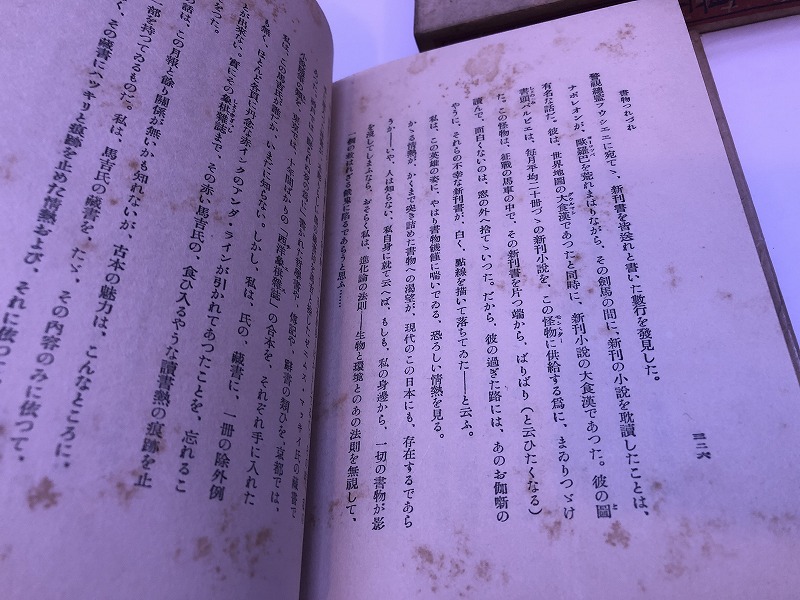 書物つれづれ
三二六
警視總監フウシエエに宛てゝ、新刊書を皆送れと書いた數行を發見した。
ナポレオンが、歐羅巴を荒れまはりながら、その劍馬の間に、新刊の小説を耽讀したことは、
有名な話だ。彼は、世界地圖の大食漢であつたと同時に、新刊小説の大食漢であつた。彼の圖
書頭バルビエは、毎月平均二十册づゝの新刊小説を、この怪物に供給する爲に、まゐりつゞけ
た。この怪物は、征戰の馬車の中で、その新刊書を片つ端から、ばりばり（と云ひたくなる）
讀んで、面白くないのは、窓の外へ捨てゝいつた。だから、彼の過ぎた路には、あのお伽噺の
やうに、それらの不幸な新刊書が、白く、點線を描いて落ちてゐた――と云ふ。
私は、この英雄の姿に、やはり書物饑饉に喘いでゐる、恐ろしい情熱を見る。
かゝる情熱が、かくまで突き詰めた書物への渇望が、現代のこの日本にも、存在するであら
うか――いや、人は知らない、私自身に就て云へば、もしも、私の身邊から、一切の書物が影
を沒してしまふなら、おそらく私は、進化論の法則――生物と環境とのあの法則を無視して、
一個の救はれざる餓鬼に陷るであらうと思ふ……
十年間ばかりの「西洋象棋雜誌」の合本を、それぞれ手に入れた
私は、この馬吉氏が誰か、いまだに知らない。しかし、私は、氏の、藏書に、一册の除外例
も無い、ほとんど各頁に丹念な赤インクのアンダ・ラインが引かれてあつたことを、忘れるこ
とが出來ない。實にその象棋雜誌まで、その赤い馬吉氏の、食ひ入るやうな讀書熱の痕跡を止
の話は、この月報と餘り關係が無いかも知れないが、古本の魅力は、こんなところに、
一部を持つてゐるものだ。私は、馬吉氏の藏書を、たゞ、その内容のみに依つて、
く、その藏書にハツキリと痕跡を止めた情熱および、それに依つて